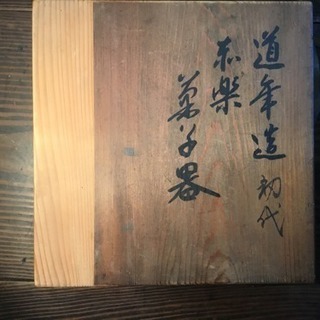 道年造 初代
赤楽
菓子器